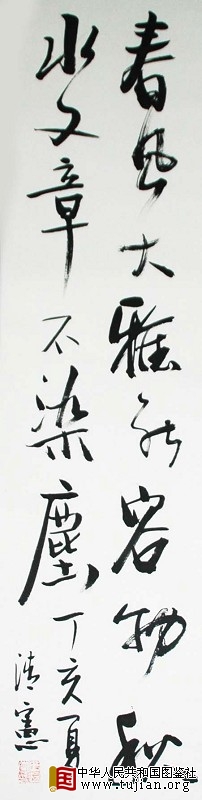 春風大雅能容物秋
水文章不染塵丁亥夏
清憲
中华人民共和国图鉴社
www.tujian.org